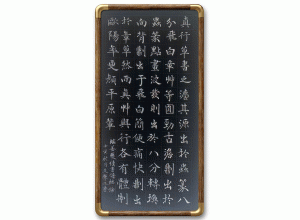 真行草書之法其源出於蟲篆八
分飛白章艸等圓勁古澹則出於
蟲篆點畫波發則出於八分轉換
向背則出于飛白簡便痛快則出
於章草然而真艸與行各有體制
歐陽率更顏平原輩